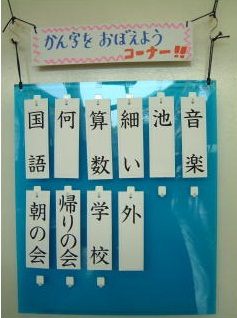 かん字を おぼえよう
コーナー!!
音楽
池
細い
算数
何
国語
外
学校
帰りの会
朝の会